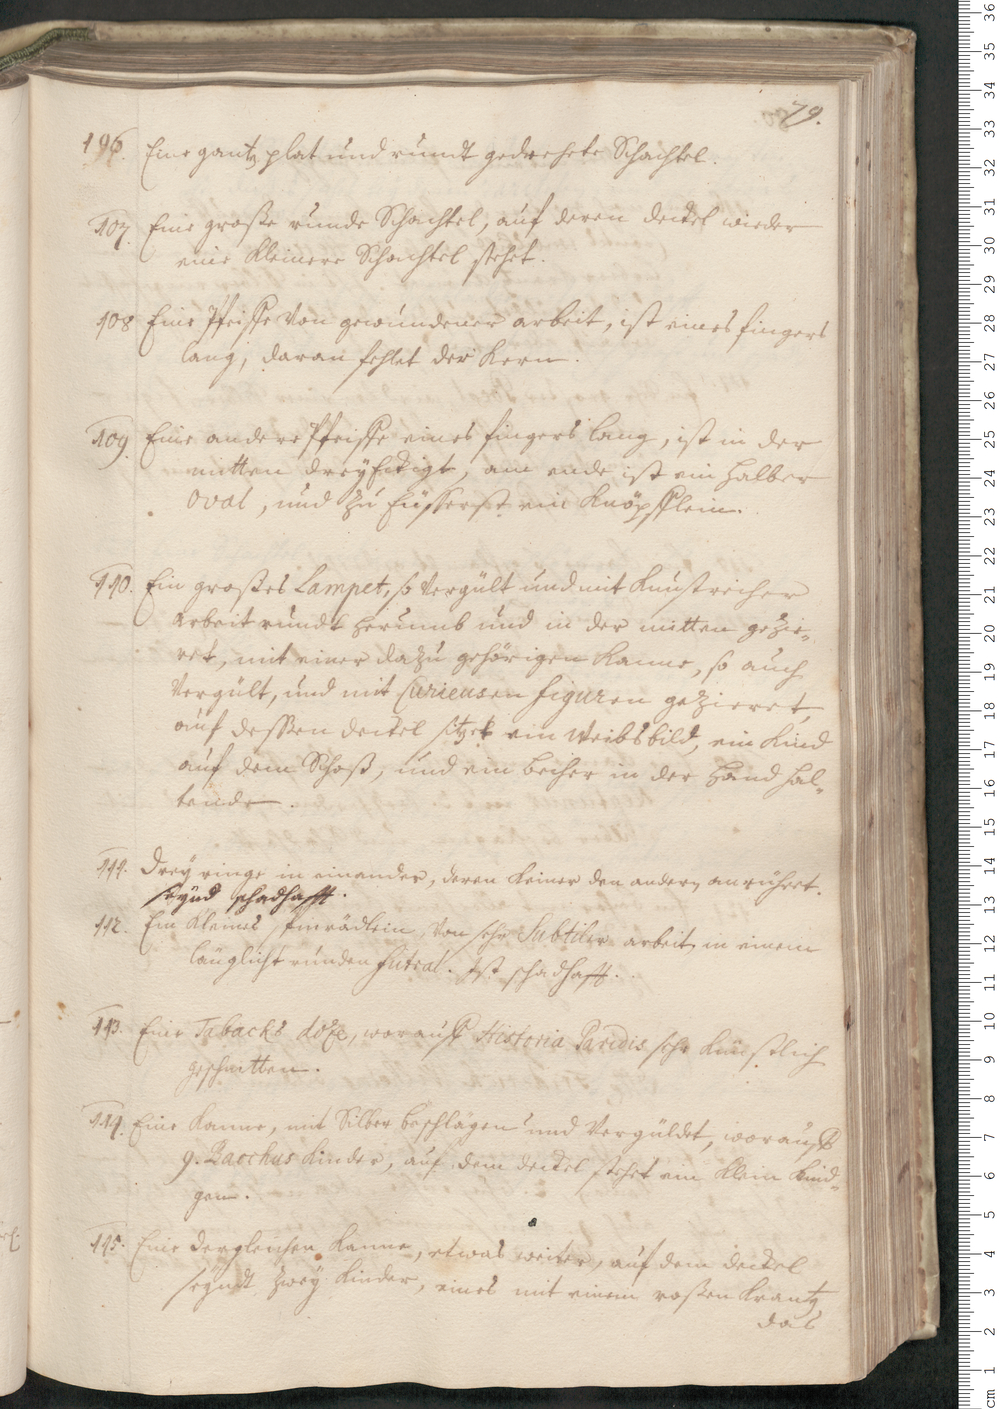 79.
106. Eine gantz plat und rundt gedrehete Schachtel.
107. Eine große runde Schachtel, auf deren deckel wieder
eine kleinere Schachtel stehet.
108 Eine Pfeiffe von gewundener arbeit, ist eines fingers
lang, daran fehlet der Kern.
109. Eine andere Pfeiffe eines fingers lang, ist in der
mitten dreyeckigt, am ende ist ein halber
Oval, und zu äusserst ein Knöpfflein.
110. Ein großes Lampet, so vergült und mit Kunstreicher
arbeit rundt herumb und in der mitten gezie-
ret, mit einer dazu gehörigen Kanne, so auch
vergült, und mit Curieusen figuren gezieret,
auf dessen deckel sitzet ein Weibsbild, ein Kind
auf dem Schoß, und ein becher in der Hand hal-
tende.
111. Drey ringe in einander, deren keiner den andern anrühret.
seynd schadhafft.
112. Ein kleines Spinrädlein, von sehr Subtiler arbeit, in einem
länglicht runden futral. Ist schadhafft.
113. Eine Tabacks doze, worauff Historia Paridis sehr künstlich
geschnitten.
114. Eine Kanne, mit Silber beschlagen und vergüldet, worauff
9. Bacchus Kinder, auf dem deckel stehet ein klein Kind-
gen.
115. Eine dergleichen Kanne, etwas weiter, auf dem deckel
seyndt zwey Kinder, eines mit einem roßen Krantz,
das